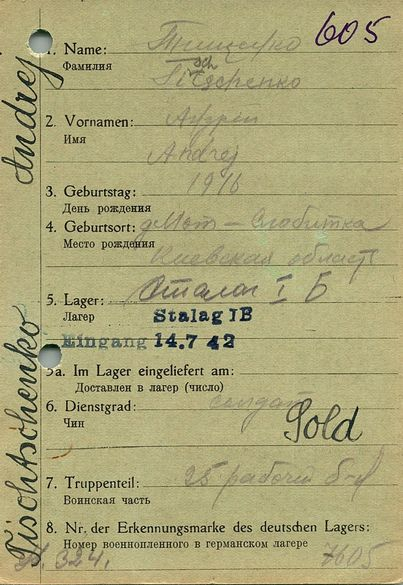 605
1. Name:
Фамилия
Tischenko
2. Vornamen:
Имя
Andrej
3. Geburtstag: 1916
День рождения
4. Geburtsort:
Место рождения
Киевская област
5. Lager: Сталог I Б
Лагер
Stalag IB
Eingang 14.7.42
5a. Im Lager eingeliefert am:
Доставлен в лагер (число)
6. Dienstgrad: солдат
Чин
Sold
7. Truppenteil: 25 рабочий б-н
Воинская часть
8. Nr. der Erkennungsmarke des deutschen Lagers:
Номер военнопленного в германском лагере
605
Tischtschenko Andrej